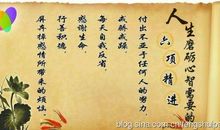 人生磨砺心智需要的
六项精进
付出不亚于任何人的努力,
戒骄戒躁,
每天自我反省,
感谢生命,
行善积德,
摒弃掉感性所带来的烦恼